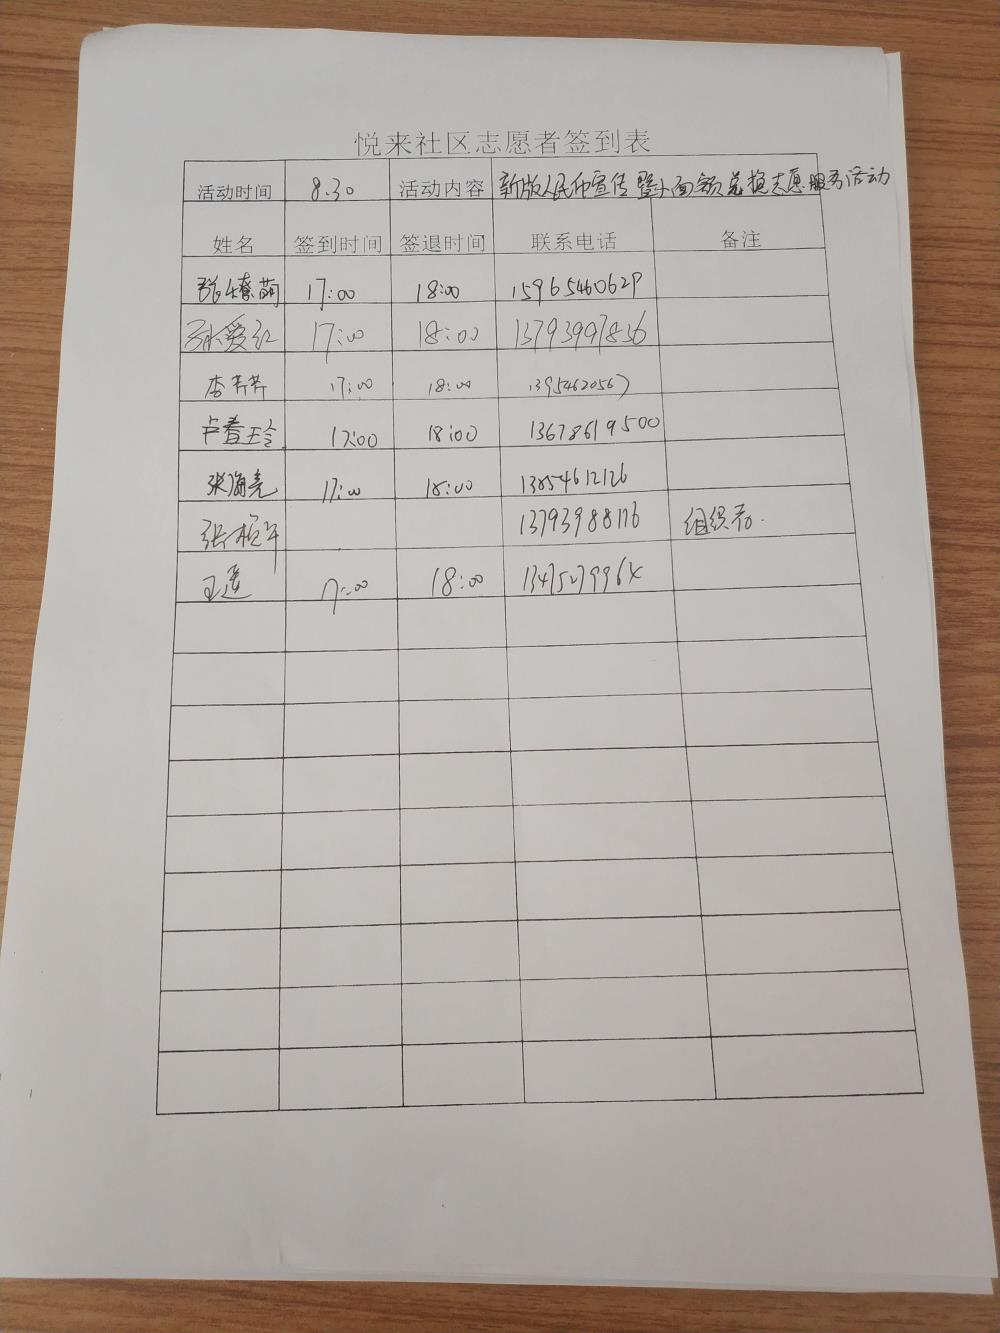 悦来社区志愿者签到表
活动时间 8.30 活动内容 新版人民币宣传暨小面额兑换志愿服务活动
姓名 签到时间 签退时间 联系电话 备注
17:00 18:00 15965460629
孙爱红 17:00 18:00 13793997836
李芹芹 17:00 18:00 13954620567
卢春玲 17:00 18:00 13678619500
张海亮 17:00 18:00 13854612126
13793988176 组织者.
王莲 17:00 18:00